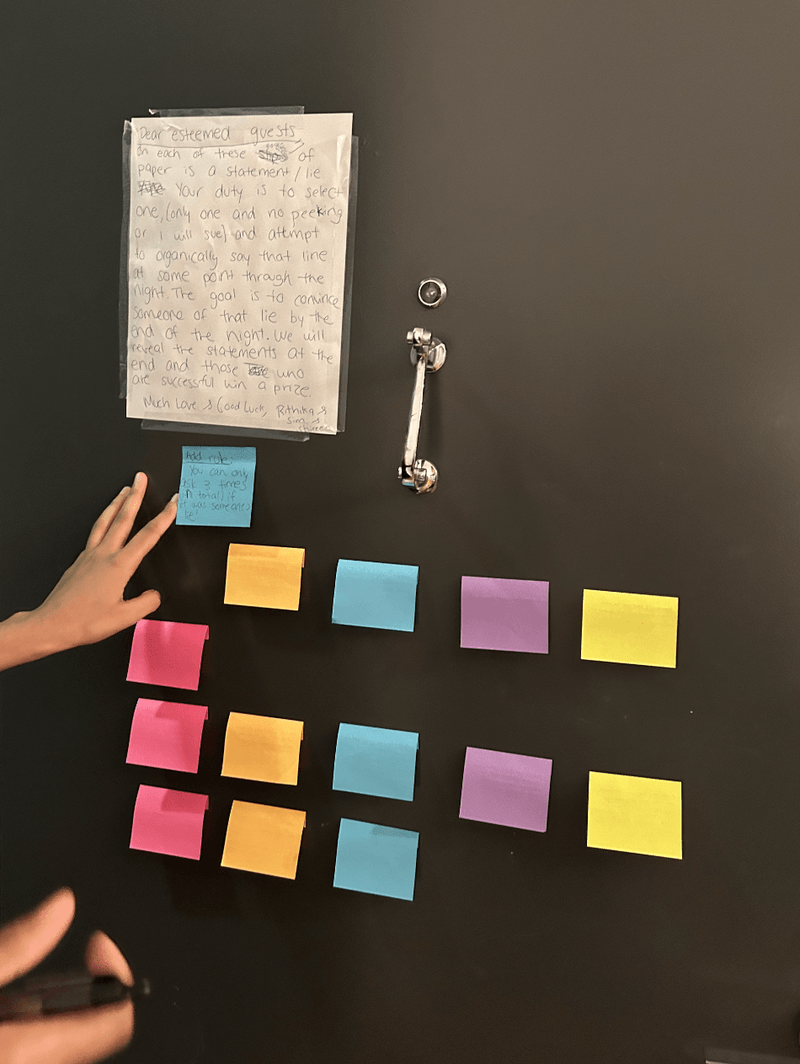 Dear esteemed guests
On each of these pages of
paper is a statement/lie
Your duty is to select
one, (only one and no peeking
or i will sue) and attempt
to organically say that line
at some point through the
night. The goal is to convince
someone of that lie by the
end of the night. We will
reveal the statements at the
end and those who
are successful win a prize.
Much Love & Good Luck, Rithika &
Add rule:
You can only
ask 3 times
in total if
it was someones
lie!